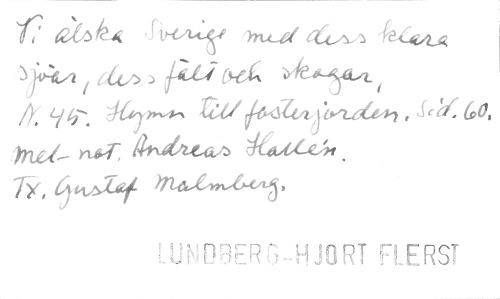 Vi älska Sverige med dess klara
sjöar, dess fält och skogar,
N. 45. Hymn till fosterjorden. Sid. 60.
mel-not. Andreas Hallén.
Tx. Gustaf Malmberg.
LUNDBERG-HJORT FLERST